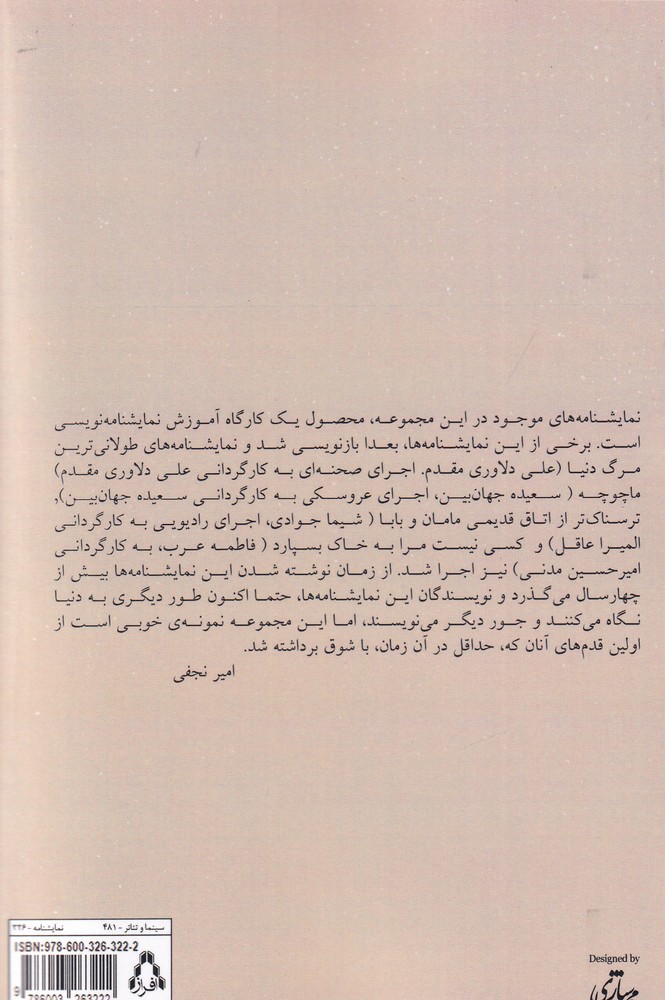 نمایشنامه‌های موجود در این مجموعه، محصول یک کارگاه آموزش نمایشنامه‌نویسی
است. برخی از این نمایشنامه‌ها، بعدا بازنویسی شد و نمایشنامه‌های طولانی‌ترین
مرگ دنیا (علی دلاوری مقدم. اجرای صحنه‌ای به کارگردانی علی دلاوری مقدم)
ماچوچه ( سعیده جهان‌بین، اجرای عروسکی به کارگردانی سعیده جهان‌بین),
ترسناک‌تر از اتاق قدیمی مامان و بابا ( شیما جوادی، اجرای رادیویی به کارگردانی
المیرا عاقل) و کسی نیست مرا به خاک بسپارد ( فاطمه عرب، به کارگردانی
امیرحسین مدنی) نیز اجرا شد. از زمان نوشته شدن این نمایشنامه‌ها بیش از
چهارسال می‌گذرد و نویسندگان این نمایشنامه‌ها، حتما اکنون طور دیگری به دنیا
نگاه می‌کنند و جور دیگر می‌نویسند، اما این مجموعه نمونه‌ی خوبی است از
اولین قدم‌های آنان که، حداقل در آن زمان، با شوق برداشته شد.
امیر نجفی
سینما و تئاتر - ۴۸۱ نمایشنامه - ۳۳۶
ISBN:978-600-326-322-2
افراز
9 786003 263222
Designed by